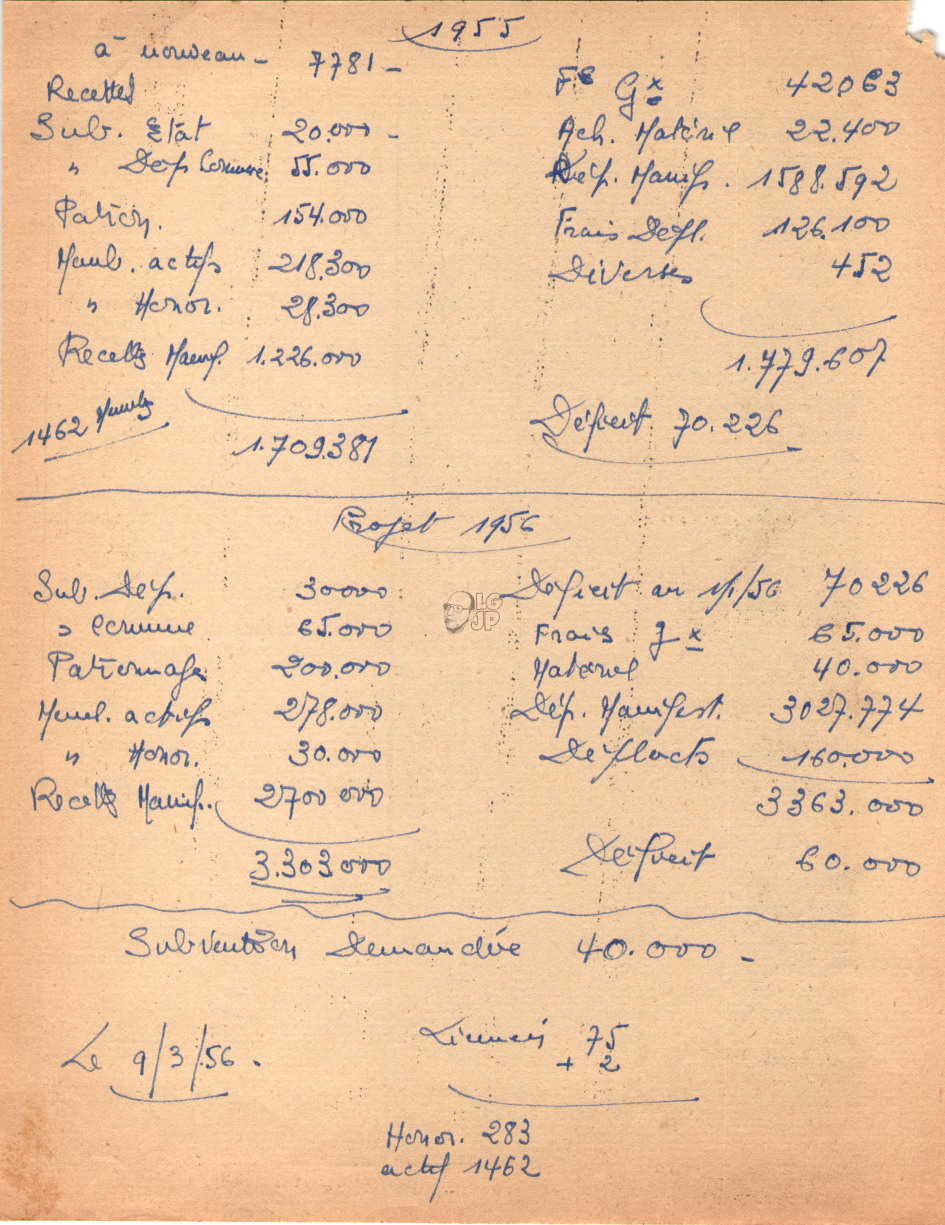 1955
à nouveau - 7781 -
Recettes
Sub. Etat 20.000 -
" Dep Commune 55.000
Patron. 154.000
Memb. actifs 218.300
" Honor. 28.300
Recettes Manif. 1.226.000
1462 Membres
1.709.381
Fs Gx 42063
Ach. Matériel 22.400
Dép. Manif. 1588.592
Frais Depl. 126.100
Diverses 452
1.779.607
Déficit 70.226
Projet 1956
Sub. Dep. 30000
" Commune 65.000
Patronnage 200.000
Memb. actifs 278.000
" Honor. 30.000
Recettes Manif. 2700 000
3.303.000
Deficit au 1/1/56 70226
Frais gx 65.000
Materiel 40.000
Dép. Manifest. 3027.774
Deplacts 160.000
3363.000
Déficit 60.000
LG
JP
Subvention Demandée 40.000 -
Le 9/3/56.
75
+ 2
Honor. 283
actif 1462